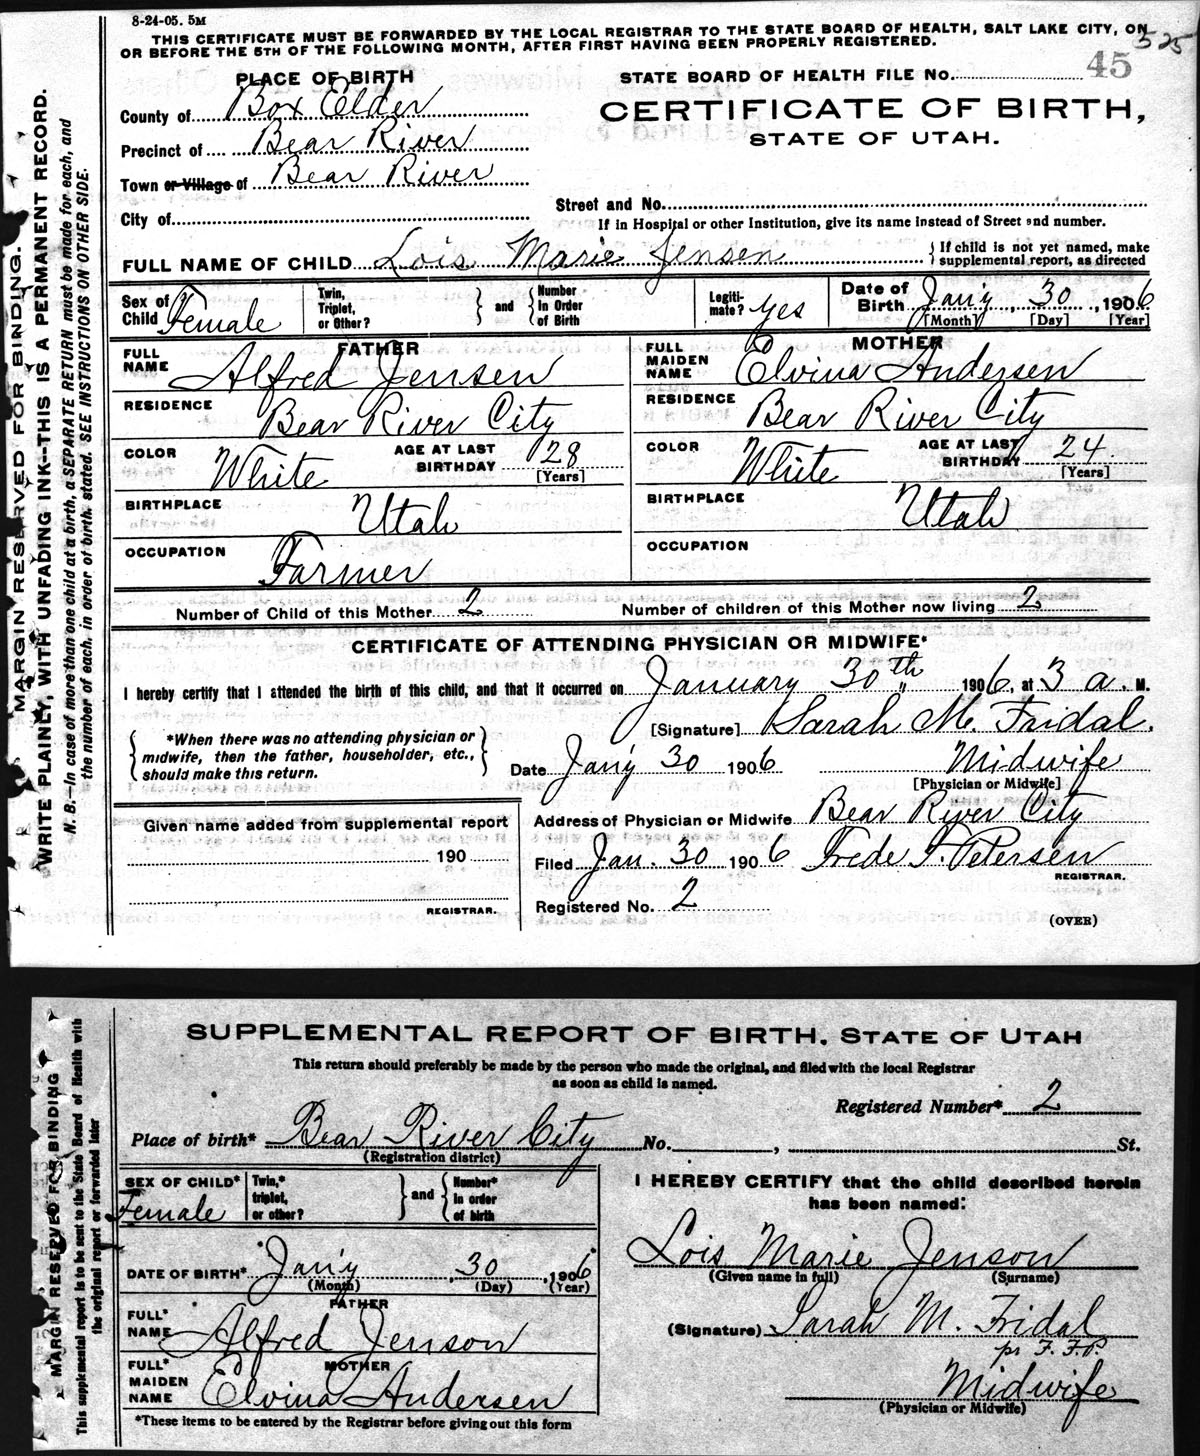 8-24-05. 5M
THIS CERTIFICATE MUST BE FORWARDED BY THE LOCAL REGISTRAR TO THE STATE BOARD OF HEALTH, SALT LAKE CITY, ON
OR BEFORE THE 5TH OF THE FOLLOWING MONTH, AFTER FIRST HAVING BEEN PROPERLY REGISTERED.
525
MARGIN RESERVED FOR BINDING.
WRITE PLAINLY, WITH UNFADING INK--THIS IS A PERMANENT RECORD.
N. B.--In case of more than one child at a birth, a SEPARATE RETURN must be made for each, and
the number of each, in order of birth, stated. SEE INSTRUCTIONS ON OTHER SIDE.
PLACE OF BIRTH
STATE BOARD OF HEALTH FILE No. 45
County of Box Elder
CERTIFICATE OF BIRTH,
STATE OF UTAH.
Precinct of Bear River
Town or Village of Bear River
City of
Street and No.
If in Hospital or other Institution, give its name instead of Street and number.
FULL NAME OF CHILD Lois Marie Jensen
If child is not yet named, make
supplemental report, as directed
Sex of Child Female
Twin, Triplet, or Other?
and
Number in Order of Birth
Legitimate? yes
Date of Birth Jan'y 30, 1906
[Month] [Day] [Year]
FATHER
FULL NAME Alfred Jensen
MOTHER
FULL MAIDEN NAME Elvina Andersen
RESIDENCE Bear River City
RESIDENCE Bear River City
COLOR White AGE AT LAST BIRTHDAY 28 [Years]
COLOR White AGE AT LAST BIRTHDAY 24 [Years]
BIRTHPLACE Utah
BIRTHPLACE Utah
OCCUPATION Farmer
OCCUPATION
Number of Child of this Mother 2 Number of children of this Mother now living 2
CERTIFICATE OF ATTENDING PHYSICIAN OR MIDWIFE*
I hereby certify that I attended the birth of this child, and that it occurred on January 30th 1906, at 3 a. M.
[Signature] Sarah M. Fridal.
*When there was no attending physician or
midwife, then the father, householder, etc.,
should make this return.
Date Jan'y 30 1906 Midwife
[Physician or Midwife]
Given name added from supplemental report
190
REGISTRAR.
Address of Physician or Midwife Bear River City
Filed Jan. 30 1906 Frede F. Petersen
REGISTRAR.
Registered No. 2
(OVER)
MARGIN RESERVED FOR BINDING
This supplemental report is to be sent to the State Board of Health with
the original report or forwarded later
SUPPLEMENTAL REPORT OF BIRTH, STATE OF UTAH
This return should preferably be made by the person who made the original, and filed with the local Registrar
as soon as child is named.
Registered Number* 2
Place of birth* Bear River City No. , St.
(Registration district)
SEX OF CHILD* Female
Twin,* triplet, or other?
and
Number* in order of birth
DATE OF BIRTH* Jan'y 30, 1906
(Month) (Day) (Year)
FATHER
FULL* NAME Alfred Jenson
MOTHER
FULL* MAIDEN NAME Elvina Andersen
*These items to be entered by the Registrar before giving out this form
I HEREBY CERTIFY that the child described herein
has been named:
Lois Marie Jenson
(Given name in full) (Surname)
(Signature) Sarah M. Fridal
pr F. F. P.
Midwife
(Physician or Midwife)